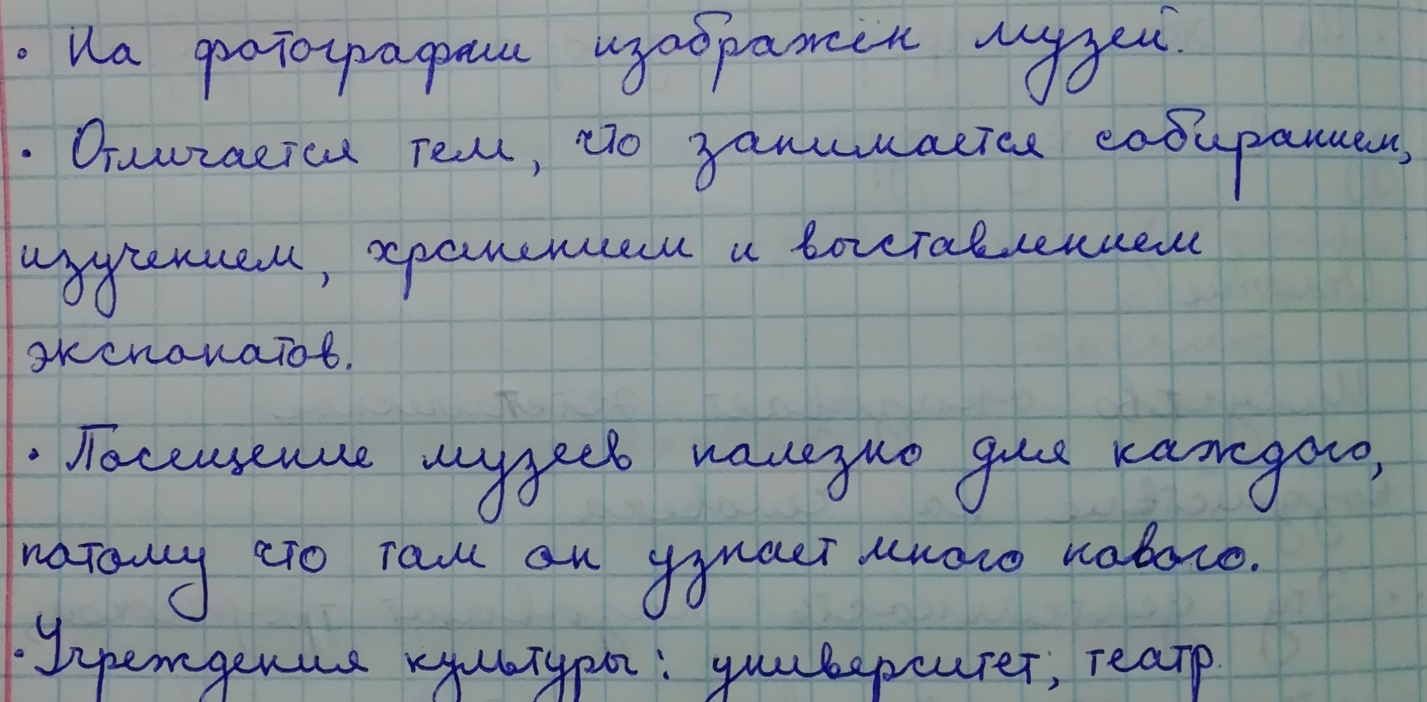 · На фотографии изображён музей.
· Отличается тем, что занимается собиранием,
изучением, хранением и выставлением
экспонатов.
· Посещение музеев полезно для каждого,
потому что там он узнает много нового.
· Учреждения культуры: университет, театр.